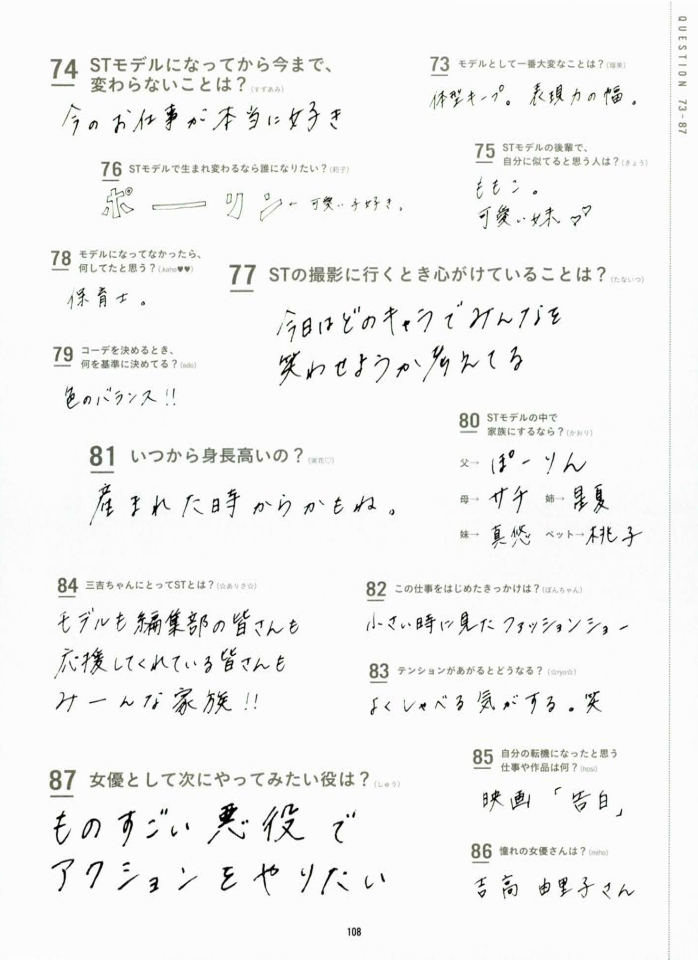 QUESTION 73-87
73 モデルとして一番大変なことは？(瑠美)
体型キープ。表現力の幅。
74 STモデルになってから今まで、
変わらないことは？(すずあみ)
今のお仕事が本当に好き
75 STモデルの後輩で、
自分に似てると思う人は？(きょう)
ももこ。
可愛い妹♡♡
76 STモデルで生まれ変わるなら誰になりたい？(和子)
ポーリン← 可愛い子好き。
77 STの撮影に行くとき心がけていることは？(たないつ)
今日はどのキャラでみんなを
笑わせようか考えてる
78 モデルになってなかったら、
何してたと思う？(kaho♥♥)
保育士。
79 コーデを決めるとき、
何を基準に決めてる？
色のバランス!!
80 STモデルの中で
家族にするなら？(かおり)
父→ ぽーりん
母→ サチ 姉→ 星夏
妹→ 真悠 ペット→桃子
81 いつから身長高いの？
産まれた時からかもね。
82 この仕事をはじめたきっかけは？(ぽんちゃん)
小さい時に見たファッションショー
83 テンションがあがるとどうなる？(☆ryo☆)
よくしゃべる気がする。笑
84 三吉ちゃんにとってSTとは？(☆ありさ☆)
モデルも編集部の皆さんも
応援してくれている皆さんも
みーんな家族!!
85 自分の転機になったと思う
仕事や作品は何？(hosi)
映画「告白」
86 憧れの女優さんは？(miho)
吉高由里子さん
87 女優として次にやってみたい役は？(しゅう)
ものすごい悪役で
アクションをやりたい
108